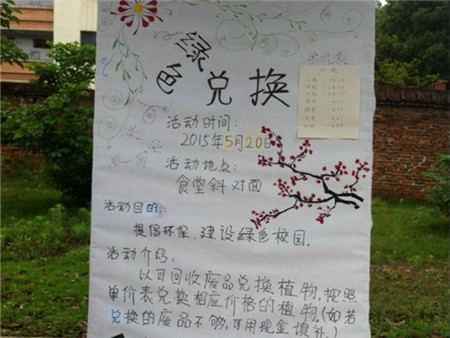 绿色兑换
单价表
活动时间:
2015年5月20日
活动地点:
食堂斜对面
活动目的:
提倡环保、建设绿色校园。
活动介绍:
以可回收废品兑换植物,按照
单价表兑换相应价格的植物,(如若
兑换的废品不够,可用现金填补)